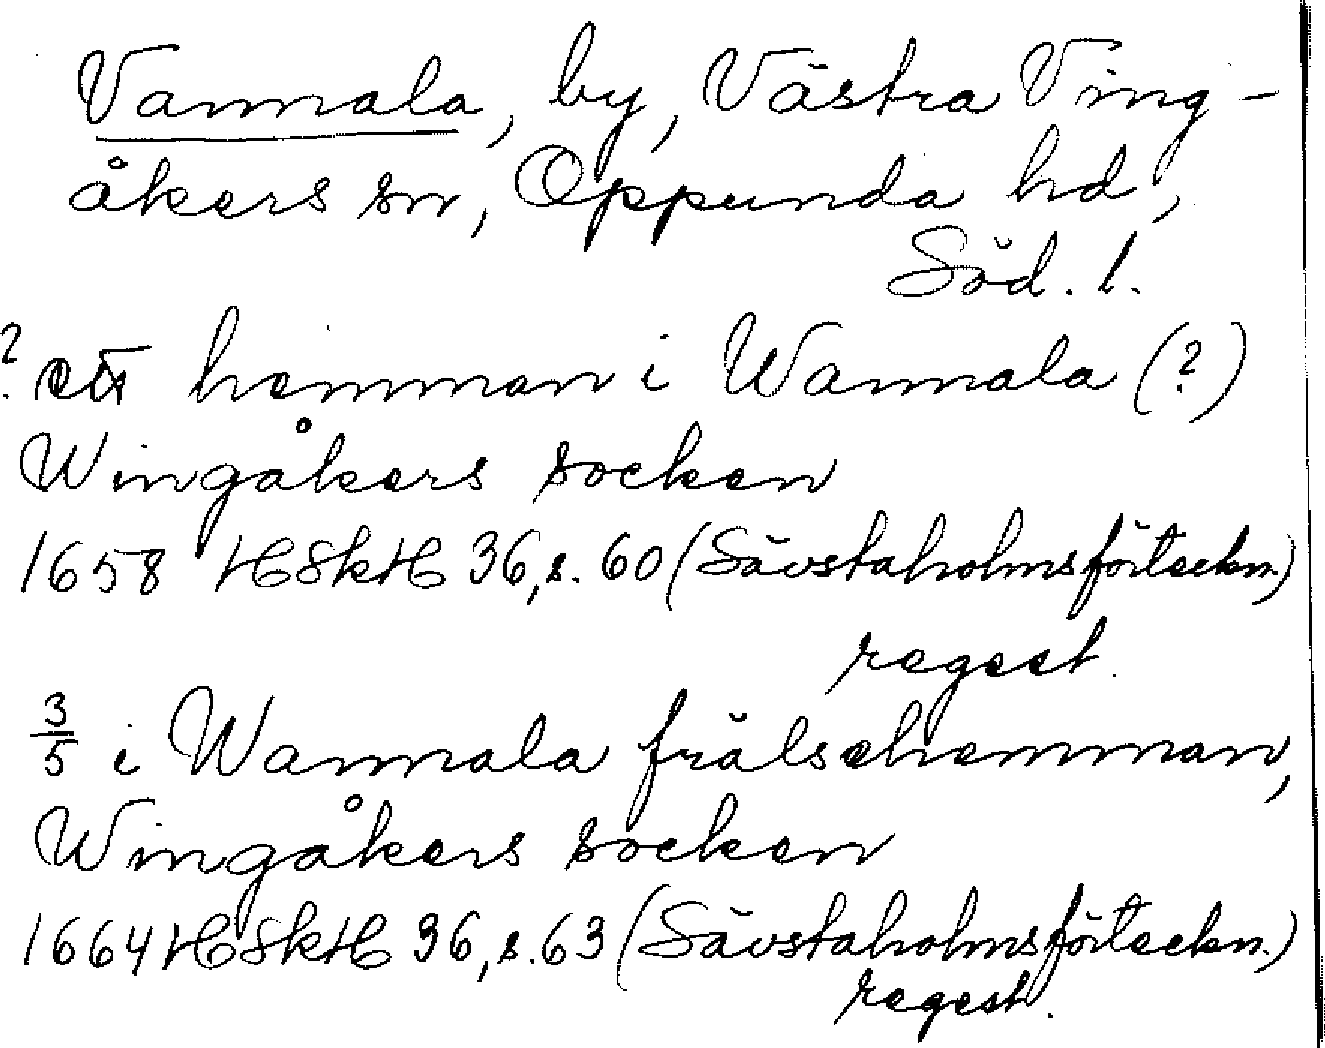 Vannala, by, Västra Ving-
åkers sn, Oppunda hd,
Söd. l.
? ett hemman i Wannala (?)
Wingåkers socken
1658 HSkH 36, s. 60 (Sävstaholmsförteckn.)
regest.
3/5 i Wannala frälsehemman,
Wingåkers socken
1664 HSkH 36, s. 63 (Sävstaholmsförteckn.)
regest.